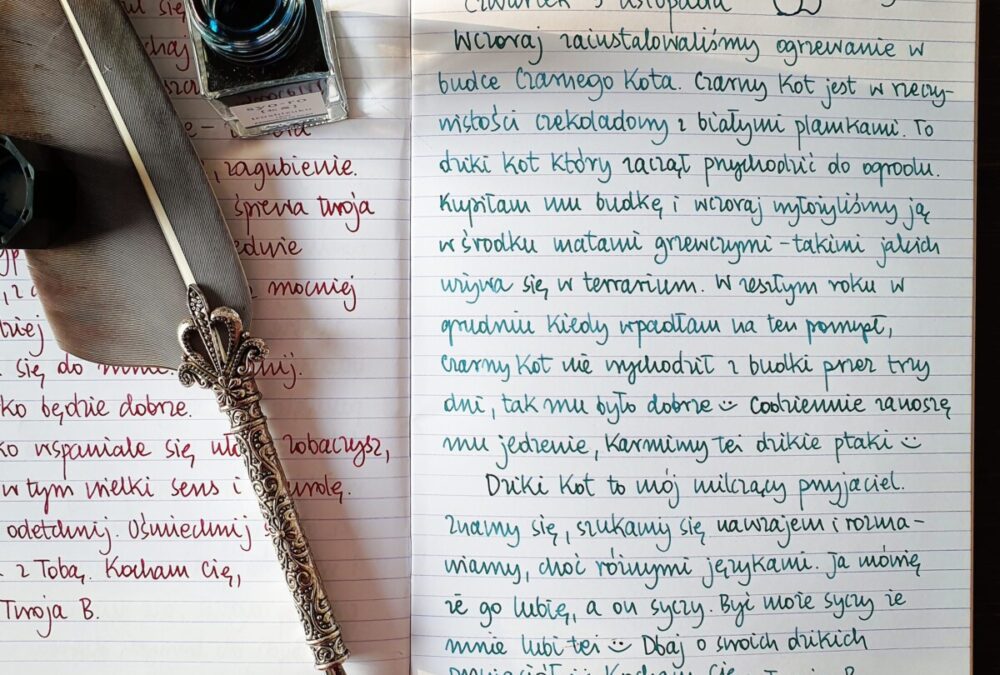 ul się
chaj
zagubienie.
śpiewa twoja
mocniej
dziej
się do
będzie dobrze.
wspaniale się zobaczysz,
w tym wielki sens i
odetchnij. Uśmiechnij
z Tobą. Kocham Cię,
Twoja B.
Czwartek 5 listopada
Wczoraj zainstalowaliśmy ogrzewanie w
budce Czarnego Kota. Czarny Kot jest w rzeczy-
wistości czekoladowy z białymi plamkami. To
dziki kot który zaczął przychodzić do ogrodu.
Kupiłam mu budkę i wczoraj wyłożyliśmy ją
w środku matami grzewczymi – takimi jakich
używa się w terrarium. W zeszłym roku w
grudniu kiedy wpadłam na ten pomysł,
Czarny Kot nie wychodził z budki przez trzy
dni, tak mu było dobrze :) Codziennie zanoszę
mu jedzenie, karmimy też dzikie ptaki :)
Dziki Kot to mój milczący przyjaciel.
Znamy się, szukamy się nawzajem i rozma-
wiamy, choć różnymi językami. Ja mówię
że go lubię, a on syczy. Być może syczy że
mnie lubi też :) Dbaj o swoich dzikich
Kocham Cię